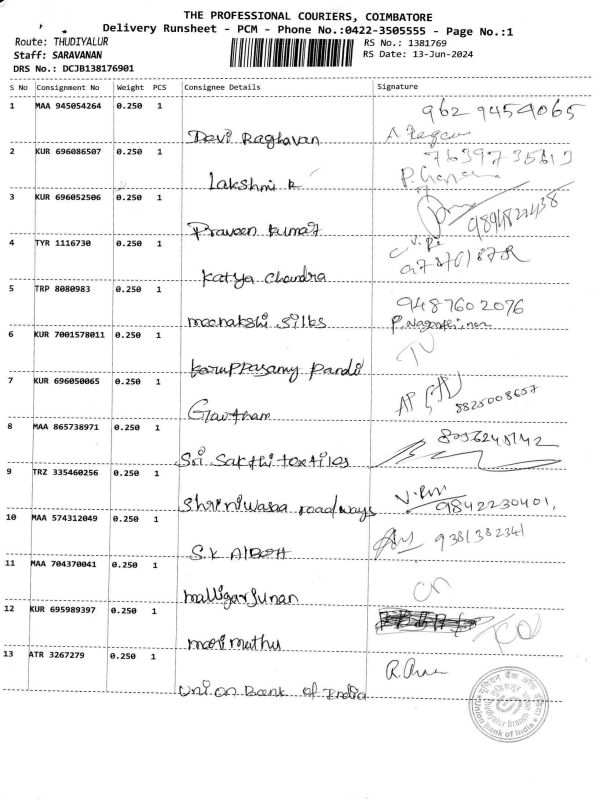 THE PROFESSIONAL COURIERS, COIMBATORE
Delivery Runsheet - PCM - Phone No.:0422-3505555 - Page No.:1
Route: THUDIYALUR
RS No.: 1381769
Staff: SARAVANAN
RS Date: 13-Jun-2024
DRS No.: DCJB138176901
S No Consignment No Weight PCS Consignee Details Signature
1 MAA 945054264 0.250 1 962 9459065
Devi Raghavan
2 KUR 696086507 0.250 1
Lakshmi K
3 KUR 696052506 0.250 1
Praveen Kumar 9894822438
4 TYR 1116730 0.250 1
Katya Chandra
5 TRP 8080983 0.250 1 9487602076
meenakshi silks
6 KUR 7001578011 0.250 1
Karuppasamy Pandi
7 KUR 696050065 0.250 1
Gowtham 8825008657
8 MAA 865738971 0.250 1 8056248142
Sri Sakthi textiles
9 TRZ 335460256 0.250 1
Shriniwasaa roadways 9842230401,
10 MAA 574312049 0.250 1 9381382341
S.K
11 MAA 704370041 0.250 1 CN
malligarjunan
12 KUR 695989397 0.250 1
marimuthu
13 ATR 3267279 0.250 1
Union Bank of India
यूनियन बैंक ऑफ इंडिया
Thudiyalur Branch
Union Bank of India